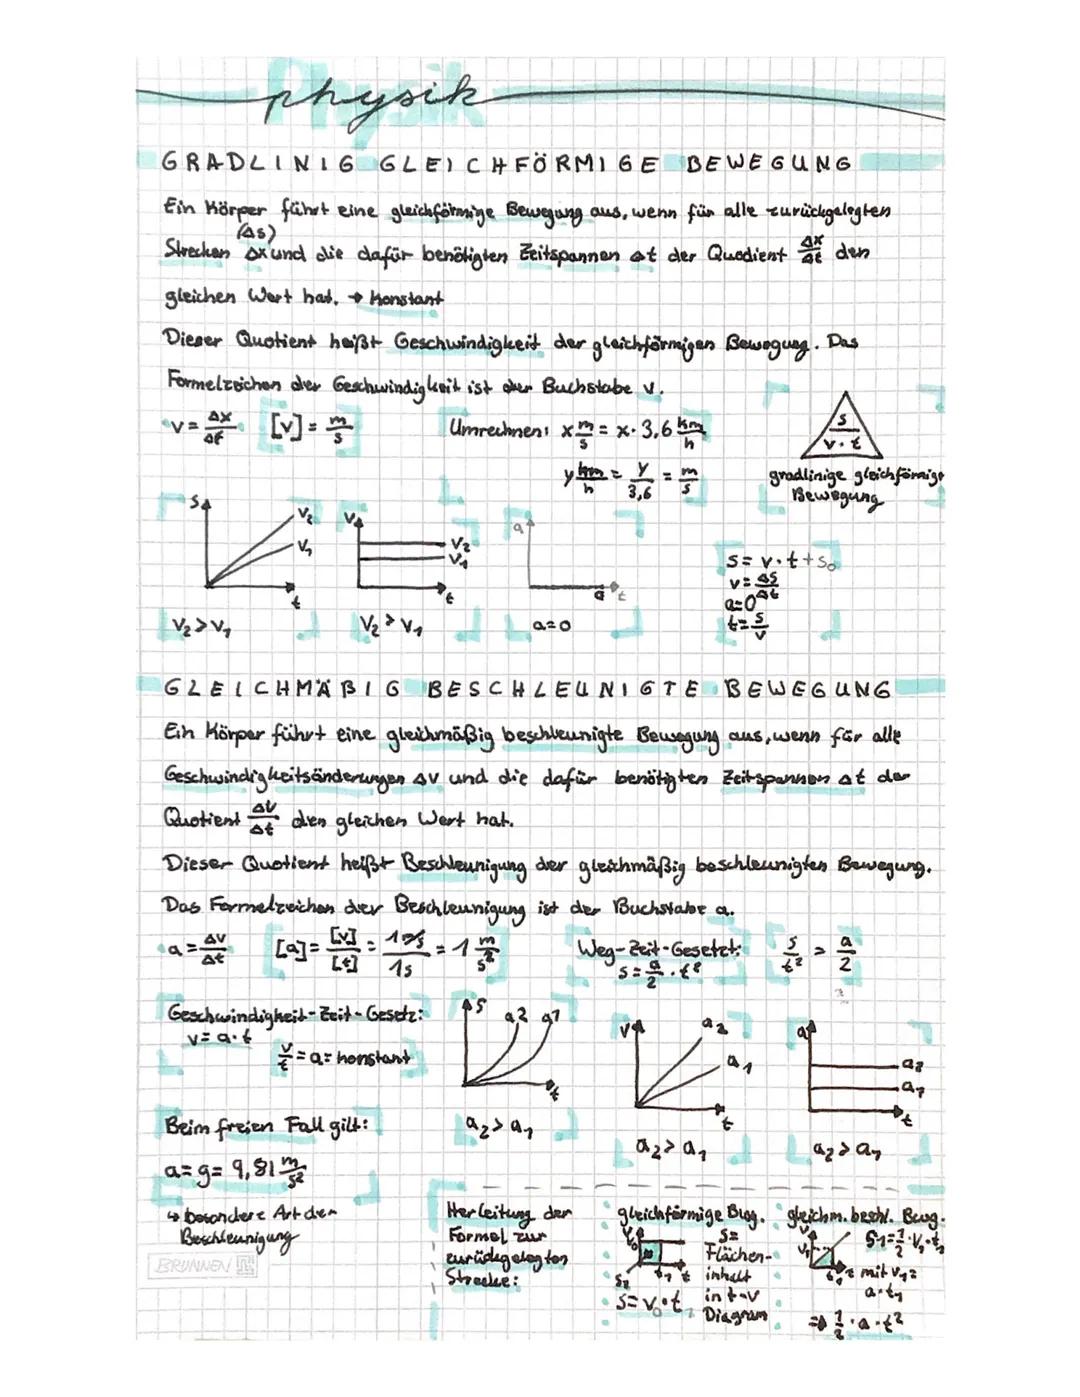 Physik
physik
GRADLINIG GLEICHFÖRMIGE BEWEGUNG
Ein Körper führt eine gleichförmige Bewegung aus, wenn für alle zurückgelegten
(Δs)
Strecken Δx und die dafür benötigten Zeitspannen Δt der Quodient Δx/Δt den
gleichen Wert hat. → Konstant
Dieser Quotient heißt Geschwindigkeit der gleichförmigen Bewegung. Das
Formelzeichen der Geschwindigkeit ist der Buchstabe v.
v = Δx/Δt [v] = m/s Umrechnen: x m/s = x · 3,6 km/h
y km/h = y/3,6 = m/s
s
v · t
gradlinige gleichförmige
Bewegung
s v₂ v₁ t
v₂ > v₁
v v₂ v₁ t
v₂ > v₁
a a t
a=0
s = v · t + s₀
v = Δs/Δt
a=0
t = s/v
GLEICHMÄßIG BESCHLEUNIGTE BEWEGUNG
Ein Körper führt eine gleichmäßig beschleunigte Bewegung aus, wenn für alle
Geschwindigkeitsänderungen Δv und die dafür benötigten Zeitspannen Δt der
Quotient Δv/Δt den gleichen Wert hat.
Dieser Quotient heißt Beschleunigung der gleichmäßig beschleunigten Bewegung.
Das Formelzeichen der Beschleunigung ist der Buchstabe a.
a = Δv/Δt [a] = [v]/[t] = 1 m/s / 1s = 1 m/s²
Weg-Zeit-Gesetzt:
s = a/2 · t²
s/t² = a/2
Geschwindigkeit-Zeit-Gesetz:
v = a · t
v/t = a = konstant
s a2 a1 t
a₂ > a₁
v a₂ a₁ t
a₂ > a₁
a a₂ a₁ t
a₂ > a₁
Beim freien Fall gilt:
a = g = 9,81 m/s²
↳ besondere Art der
Beschleunigung
BRUNNEN
Herleitung der
Formel zur
zurückgelegten
Strecke:
gleichförmige Bwg.
v₀ t₁ t
s =
Flächen-
inhalt
in t-v
Diagram
s = v₀ · t₁
gleichm. beschl. Bewg.
v v₁ t₁ t
s1 = 1/2 · v₁ · t₁
mit v₁ =
a · t₁
⇒ 1/2 · a · t²